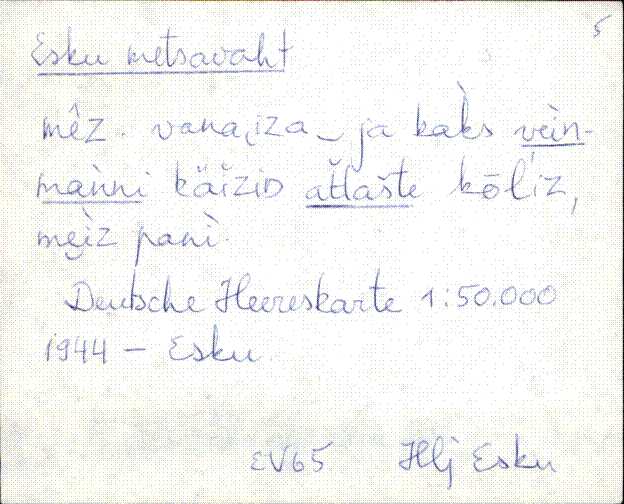 5
Esku metsavaht
mêz. vana‿iza‿ja kàks vèin-
màǹni käižiD at̆lašte kōĺìz,
mei̯z panì.
Deutsche Heereskarte 1:50.000
1944 – Esku.
EV65 Hlj Esku